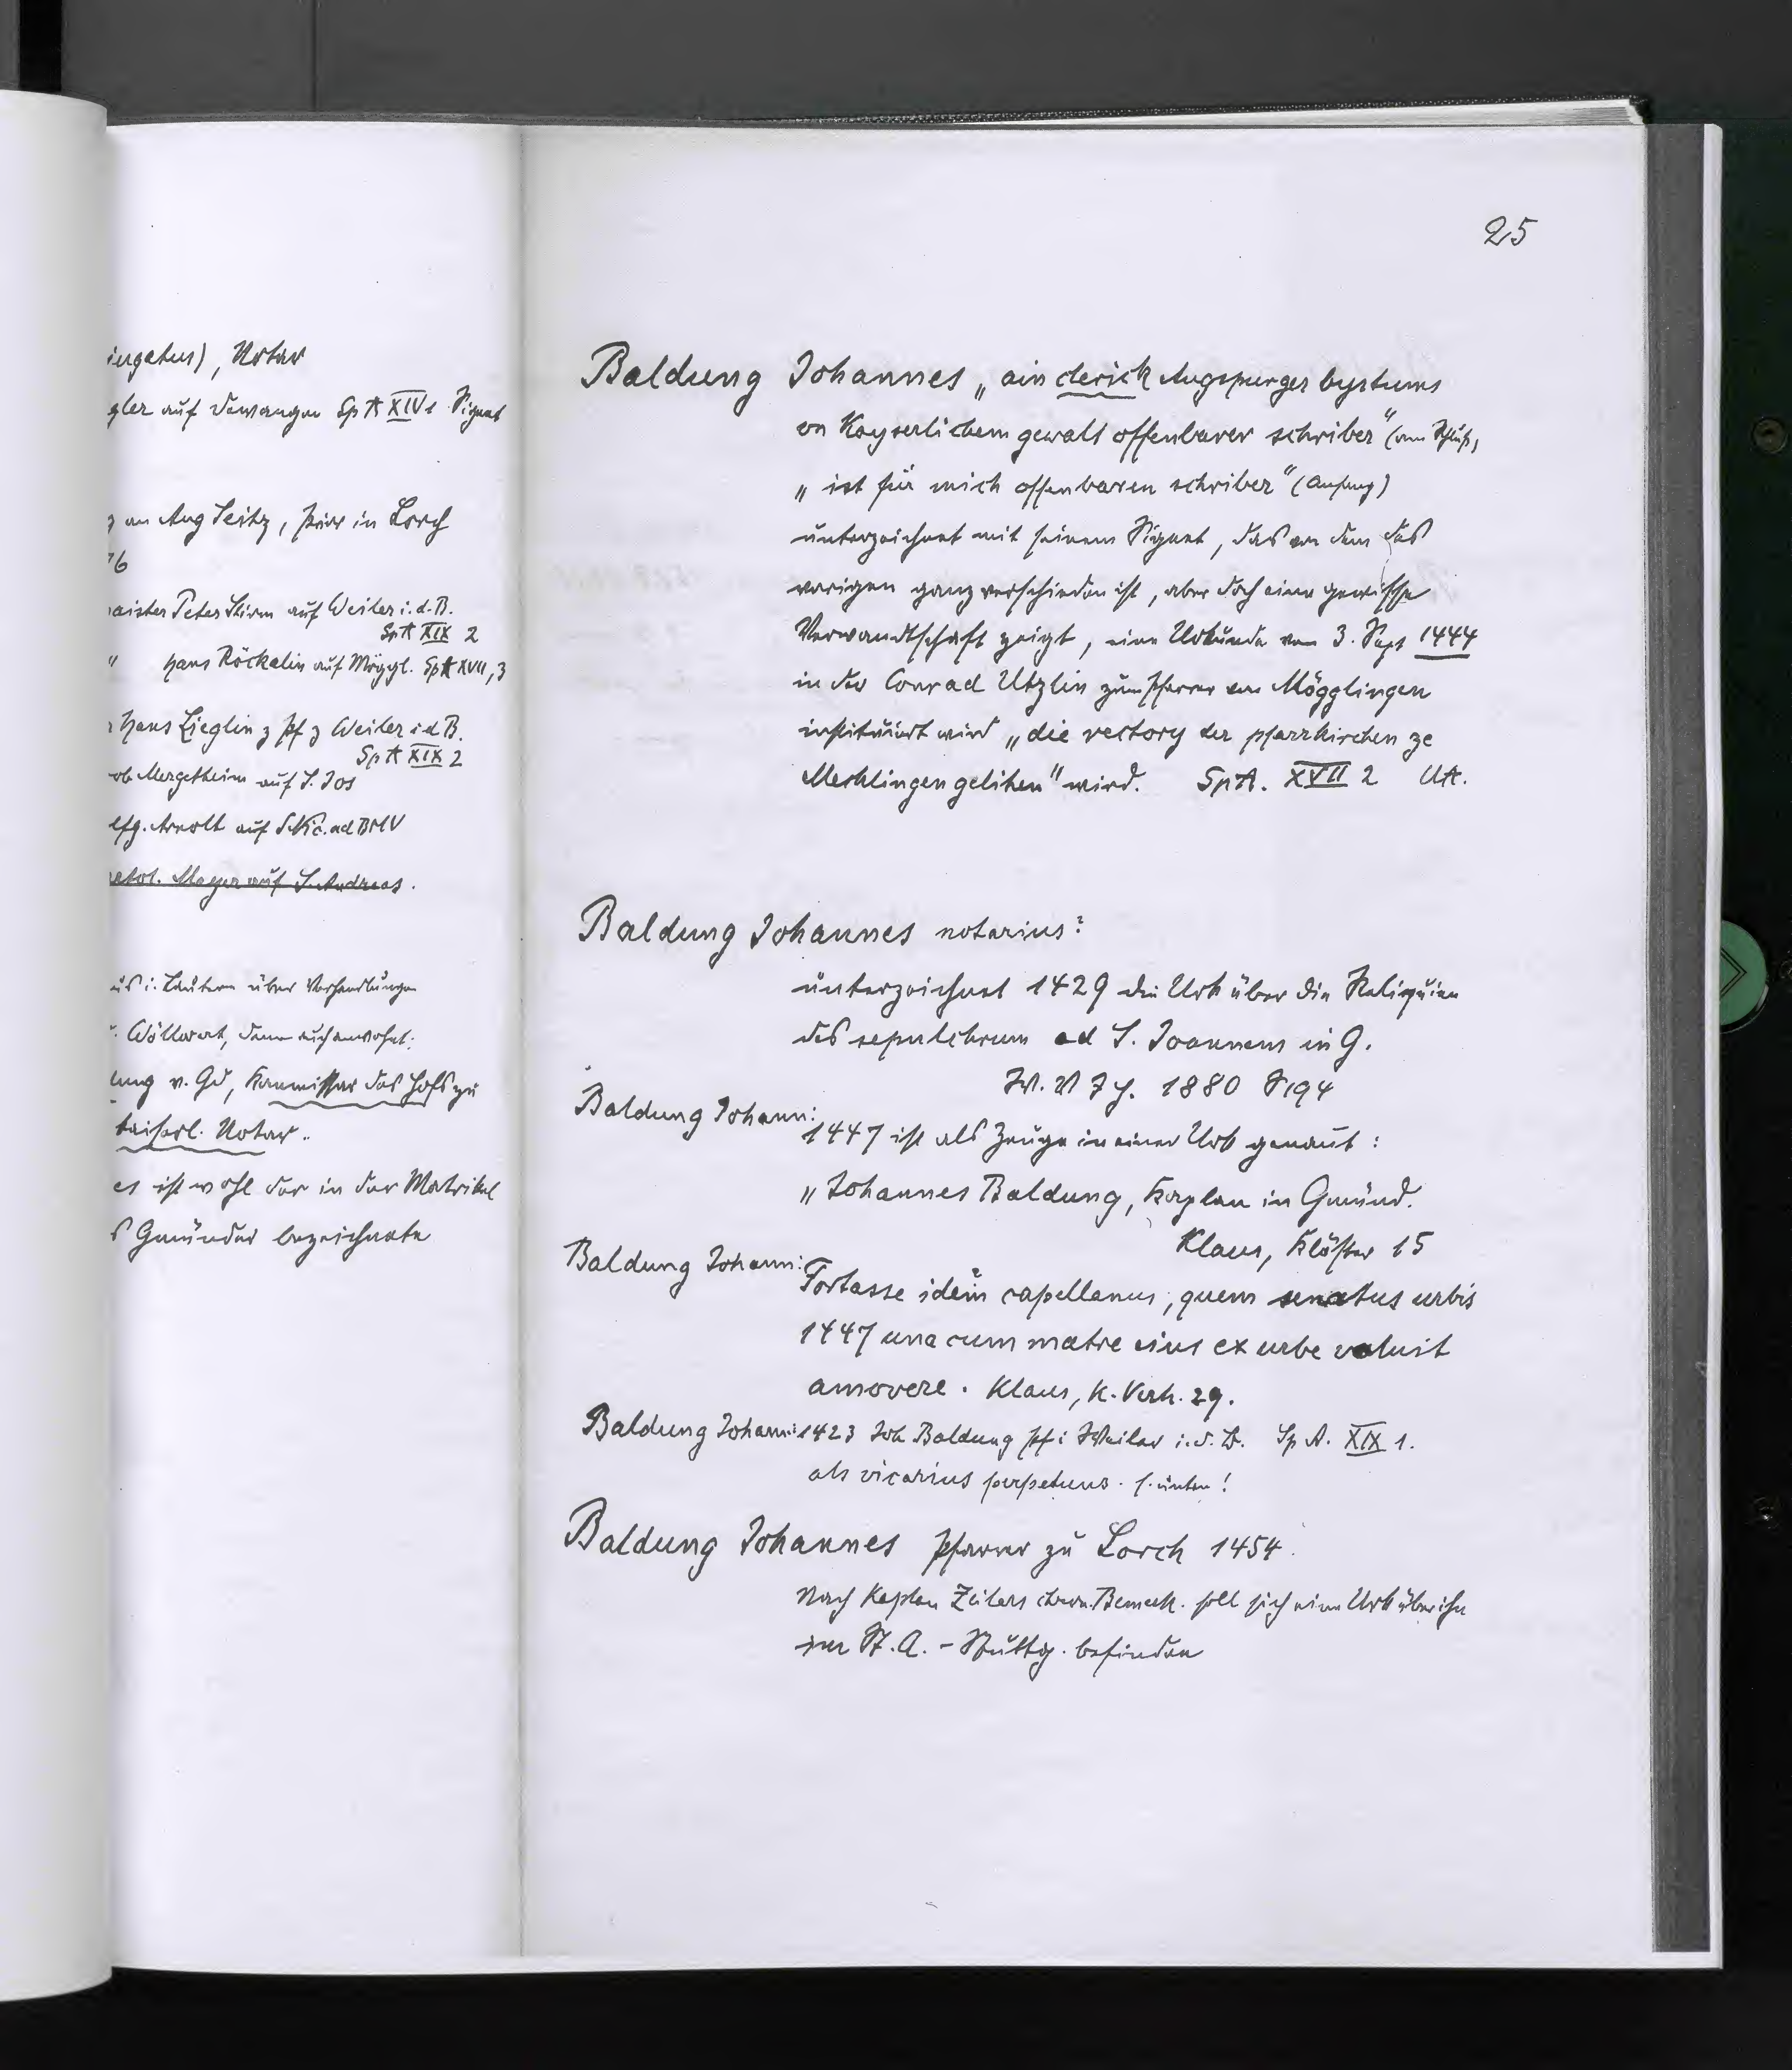 ingetus), Notar
gler auf Dewangen Sp A XIV 1 Signet
g an Aug Seitz, Pfarr in Lorch
76
maister Peter Stirm auf Weiler i. d. B.
Sp A XIX 2
" Hans Röckelin auf Möggl. Sp A XVII, 3
Hans Zieglin z Pf z Weiler i d B.
Sp A XIX 2
ob Mergetheim auf S. Jos
lfg. Arnolt auf S. Nic. ad BMV
Mayer auf S. Andreas.
aus i. Lautern über Verhandlungen
. Wöllwart, dann auch anwohnt:
ung v. Gd, Kommissar des Hofs zu
kaiserl. Notar.
es ist wohl der in der Matrikel
s Gmünder bezeichnete
25
Baldung Johannes „ain clerick Augspurger bystums
on Kayserlichem gewalt offenbarer schriber" (am Schluß,
„ist für mich offenbaren schriber" (Anfang)
unterzeichnet mit seinem Signet, das von dem des
vorigen ganz verschieden ist, aber doch eine gewisse
Verwandtschaft zeigt, eine Urkunde vom 3. Sept 1444
in der Conrad Utzlin zum Pfarrer von Mögglingen
instituirt wird „die rectory der pfarrkirchen ze
Mecklingen gelihen" wird. SpA. XVII 2 UA.
Baldung Johannes notarius?
unterzeichnet 1429 die Urk über die Reliquien
des sepulchrum ad S. Joannem in G.
W. V J H. 1880 S 194
Baldung Johann:
1447 ist als Zeuge in einer Urk genannt:
„Johannes Baldung, Kaplan in Gmünd.
Klaus, Klöster 15
Baldung Johann:
Fortasse idem? capellanus, quem senatus urbis
1447 una cum matre eius ex urbe voluit
amovere. Klaus, K. Verh. 29.
Baldung Johann: 1423 Joh Baldung Pf i Weiler i. d. B. Sp A. XIX 1.
als vicarius perpetuus. s. unten!
Baldung Johannes Pfarrer zu Lorch 1454.
Nach Kaplan Zeilers chron. Bemerk. soll sich eine Urk über ihn
im St. A. - Stuttg. befinden